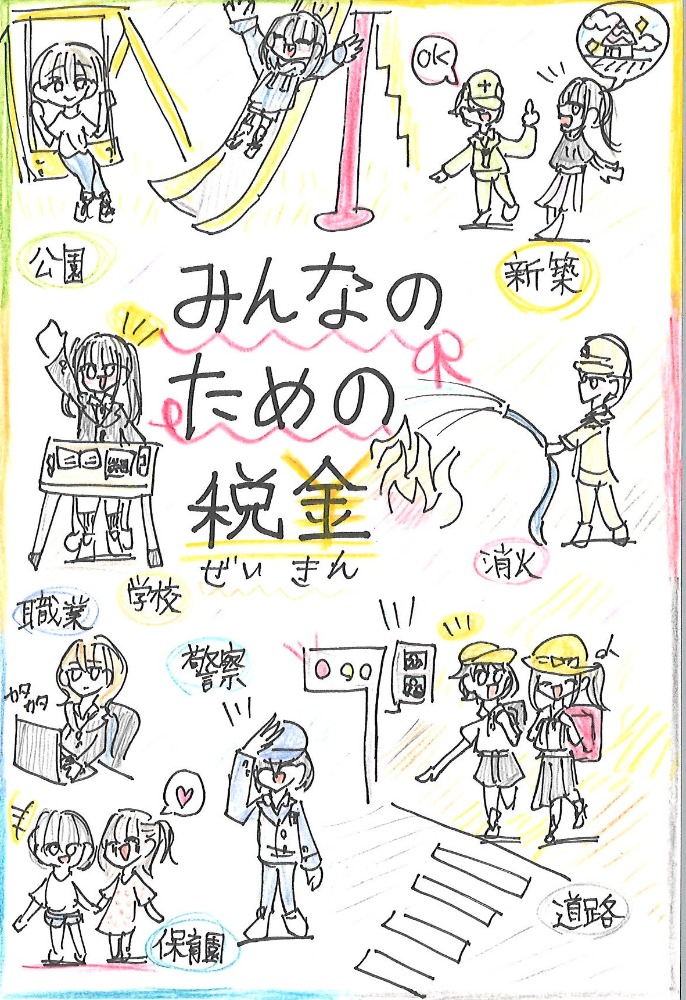 OK
公園
新築
みんなの
ための
税金
ぜいきん
消火
学校
職業
警察
カタ
カタ
道路
保育園